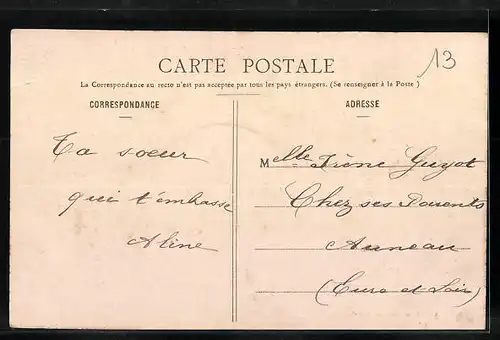 13
CARTE POSTALE
La Correspondance au recto n'est pas acceptée par tous les pays étrangers. (Se renseigner à la Poste)
CORRESPONDANCE
Ta soeur
qui t'embrasse
Aline
ADRESSE
Melle Irène Guyot
Chez ses Parents
Auneau
(Eure et Loir)